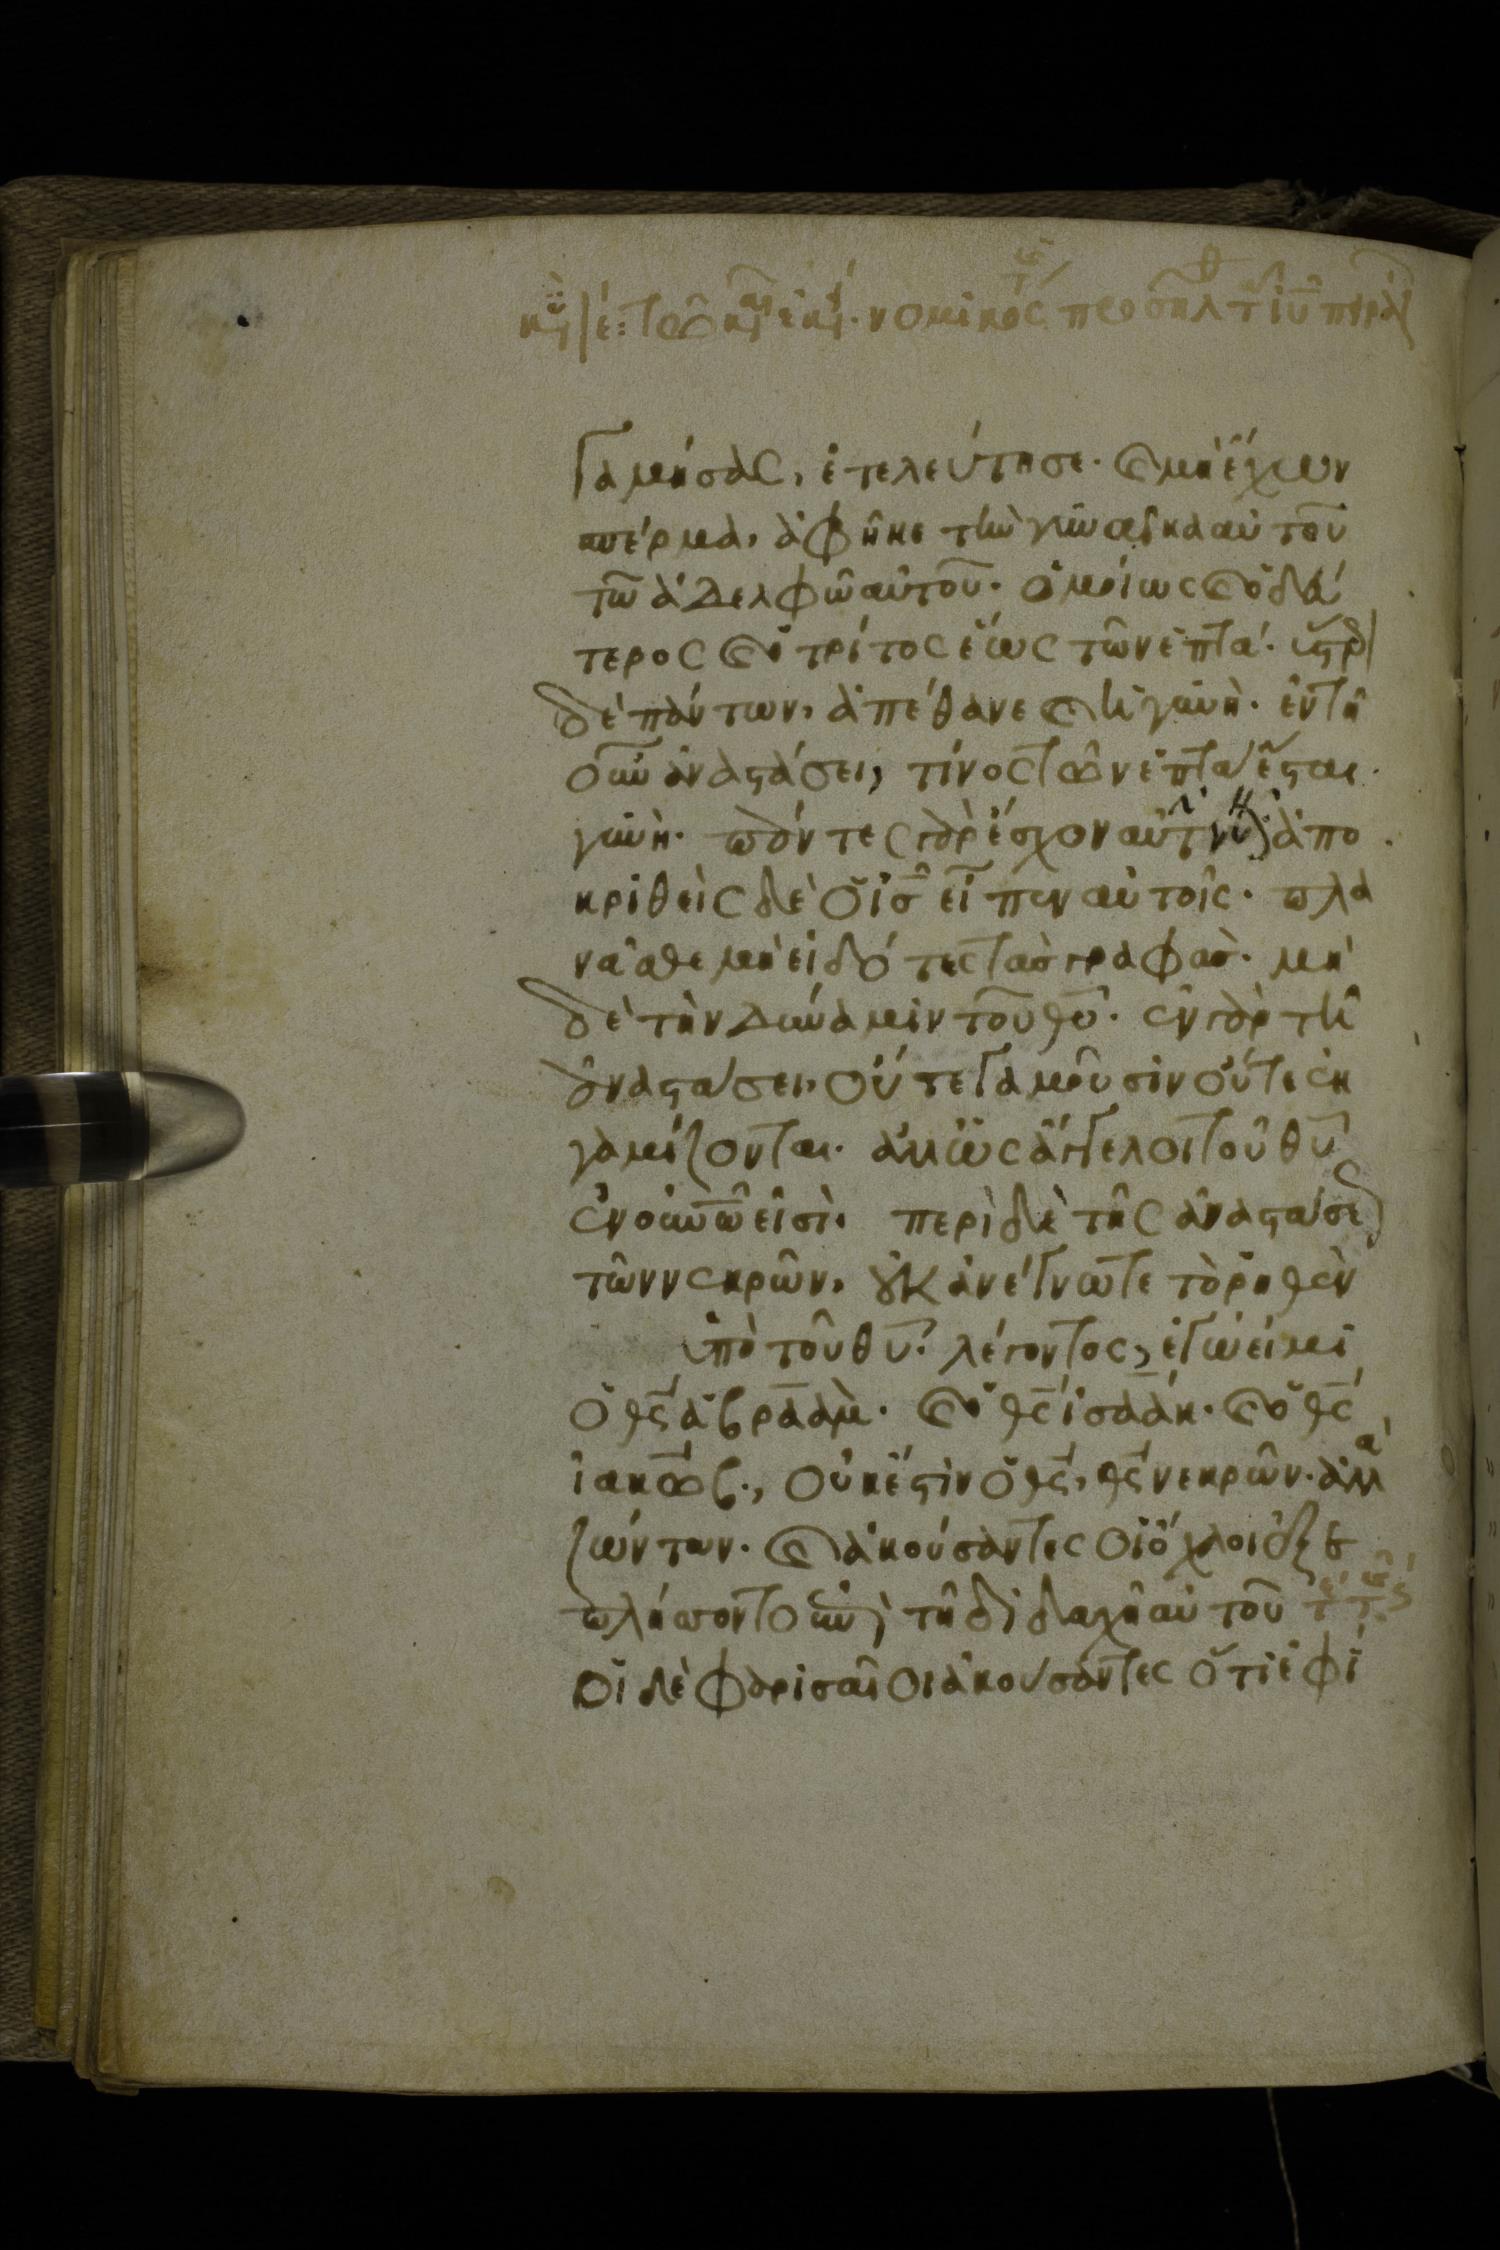 νομικός προσῆλ τ ιυ πειρά
γαμήσας, ἐτελεύτησε· καὶ μὴ ἔχων
σπέρμα, ἀφῆκε τὴν γυναῖκα αὐτοῦ
τῶ ἀδελφῶ αὐτοῦ· ὁμοίως καὶ ὁ δεύ
τερος καὶ ὁ τρίτος ἕως τῶν ἑπτά· ὕστερον
δὲ πάντων, ἀπέθανε καὶ ἡ γυνή· ἐν τῆ
οὖν ἀναστάσει, τίνος τῶν ἑπτὰ ἔσται
γυνή· πάντες γὰρ ἔσχον αὐτήν· ἀπο
κριθεὶς δὲ ὁ ις εἶπεν αὐτοῖς· πλα
νᾶσθε μὴ εἰδότες τὰς γραφάς· μη
δὲ τὴν δύναμιν τοῦ θυ· ἐν γὰρ τῆ
ἀναστάσει, οὔτε γαμοῦσιν οὔτε ἐκ
γαμίζονται· ἀλλ ὡς ἄγγελοι τοῦ θυ
ἐν οὐνω εἰσί· περὶ δὲ τῆς ἀναστάσεως
τῶν νεκρῶν, οὐκ ἀνέγνωτε τὸ ῥηθὲν
ὑπὸ τοῦ θυ· λέγοντος, ἐγώ εἰμι
ὁ θς ἀβραάμ· καὶ ὁ θς ἰσαάκ· καὶ ὁ θς
ἰακώβ·, οὐκ ἔστιν ὁ θς, θς νεκρῶν· ἀλλὰ
ζώντων· καὶ ἀκούσαντες οἱ ὄχλοι ἐξε
πλήσσοντο ἐπὶ τῆ διδαχῆ αὐτοῦ
οἱ δὲ φαρισαῖοι ἀκούσαντες ὅτι ἐφί